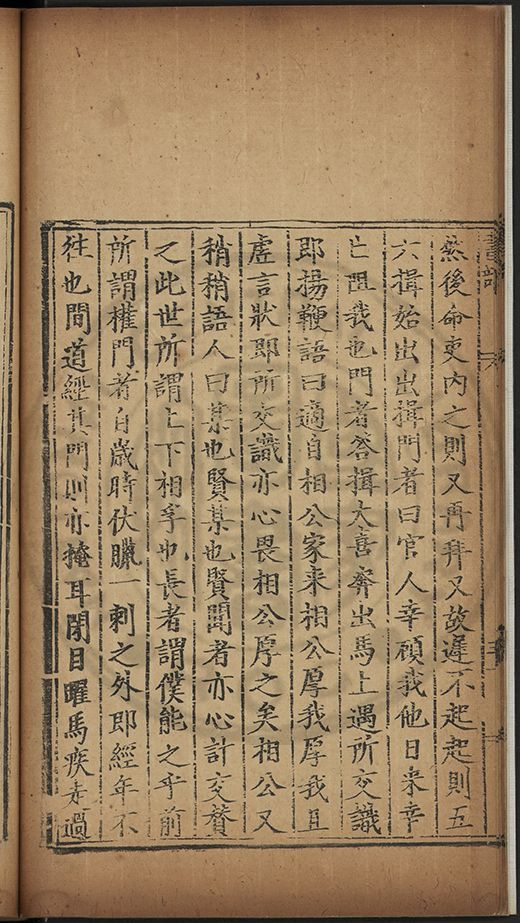 然後命吏內之則又再拜又故遲不起起則五
六揖始出出揖門者曰官人幸顧我他日来幸
亡阻我也門者答揖大喜奔出馬上遇所交識
即揚鞭語曰適自相公家来相公厚我厚我且
虛言狀即所交識亦心畏相公厚之矣相公又
稍稍語人曰某也賢某也賢聞者亦心計交贊
之此世所謂上下相孚也長者謂僕能之乎前
所謂權門者自歲時伏臘一刺之外即經年不
徃也間道經其門則亦掩耳閉目曜馬疾走過